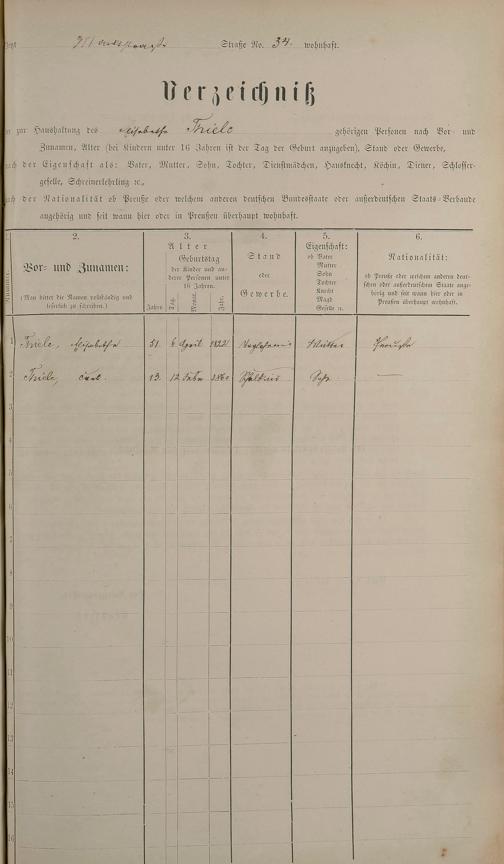 Straße No. 34. wohnhaft.
Verzeichniß
zur Haushaltung des Elisabetha Thiele gehörigen Personen nach Vor- und
Zunamen, Alter (bei Kindern unter 16 Jahren ist der Tag der Geburt anzugeben), Stand oder Gewerbe,
nach der Eigenschaft als: Vater, Mutter, Sohn, Tochter, Dienstmädchen, Hausknecht, Köchin, Diener, Schlosser-
geselle, Schreinerlehrling ꝛc.,
nach der Nationalität ob Preuße oder welchem anderen deutschen Bundesstaate oder außerdeutschen Staats-Verbande
angehörig und seit wann hier oder in Preußen überhaupt wohnhaft.
Nummer.
2.
Vor- und Zunamen:
(Man bittet die Namen vollständig und
leserlich zu schreiben.)
3.
Alter
Geburtstag
der Kinder und an-
derer Personen unter
16 Jahren.
Jahre Tag. Monat. Jahr.
4.
Stand
oder
Gewerbe.
5.
Eigenschaft:
ob Vater
Mutter
Sohn
Tochter
Knecht
Magd
Geselle ꝛc.
6.
Nationalität:
ob Preuße oder welchem anderen deut-
schen oder außerdeutschen Staate ange-
hörig und seit wann hier oder in
Preußen überhaupt wohnhaft.
1 Thiele, Elisabetha 51. 6 April 1822 Mutter
2 Thiele, Carl 13. 12
3
4
5
6
7
8
9
10
11
12
13
14
15
16